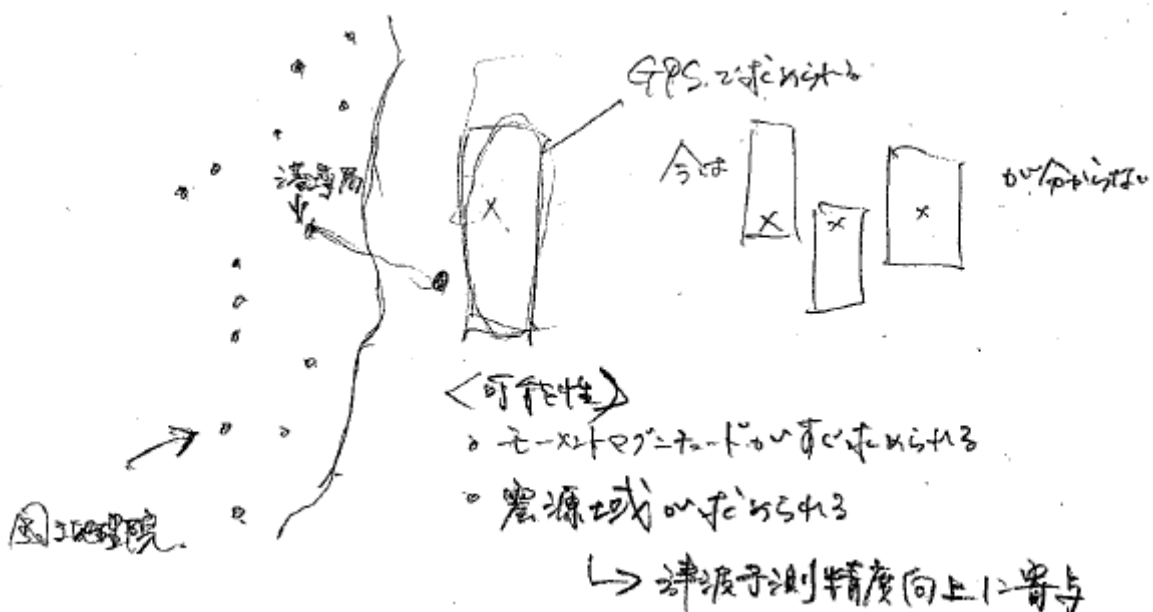 GPSで求められる
今は
が分からない
港湾局
<可能性>
。モーメントマグニチュードがすぐ求められる
。震源域が求められる
国土地理院.
↳ 津波予測精度向上に寄与